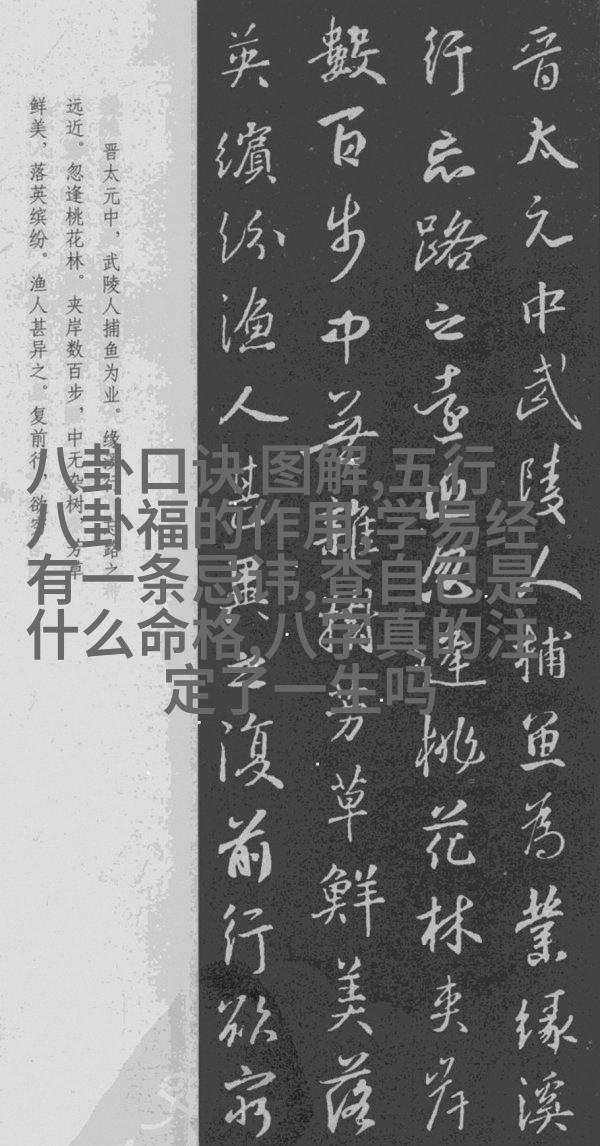 晋太元中武陵人捕鱼为业缘溪
行忘路之远近忽逢桃花林夹岸
数百步中无杂树芳草鲜美落
英缤纷渔人甚异之复前行欲穷
晋太元中，武陵人捕鱼为业。缘溪行，忘路之
远近。忽逢桃花林。夹岸数百步，中无杂树，芳草
鲜美，落英缤纷。渔人甚异之。复前行，欲穷
八卦口诀,图解,五行
八卦福的作用,学易经
有一条忌讳,查自己是
什么命格,八字真的注
定了一生吗